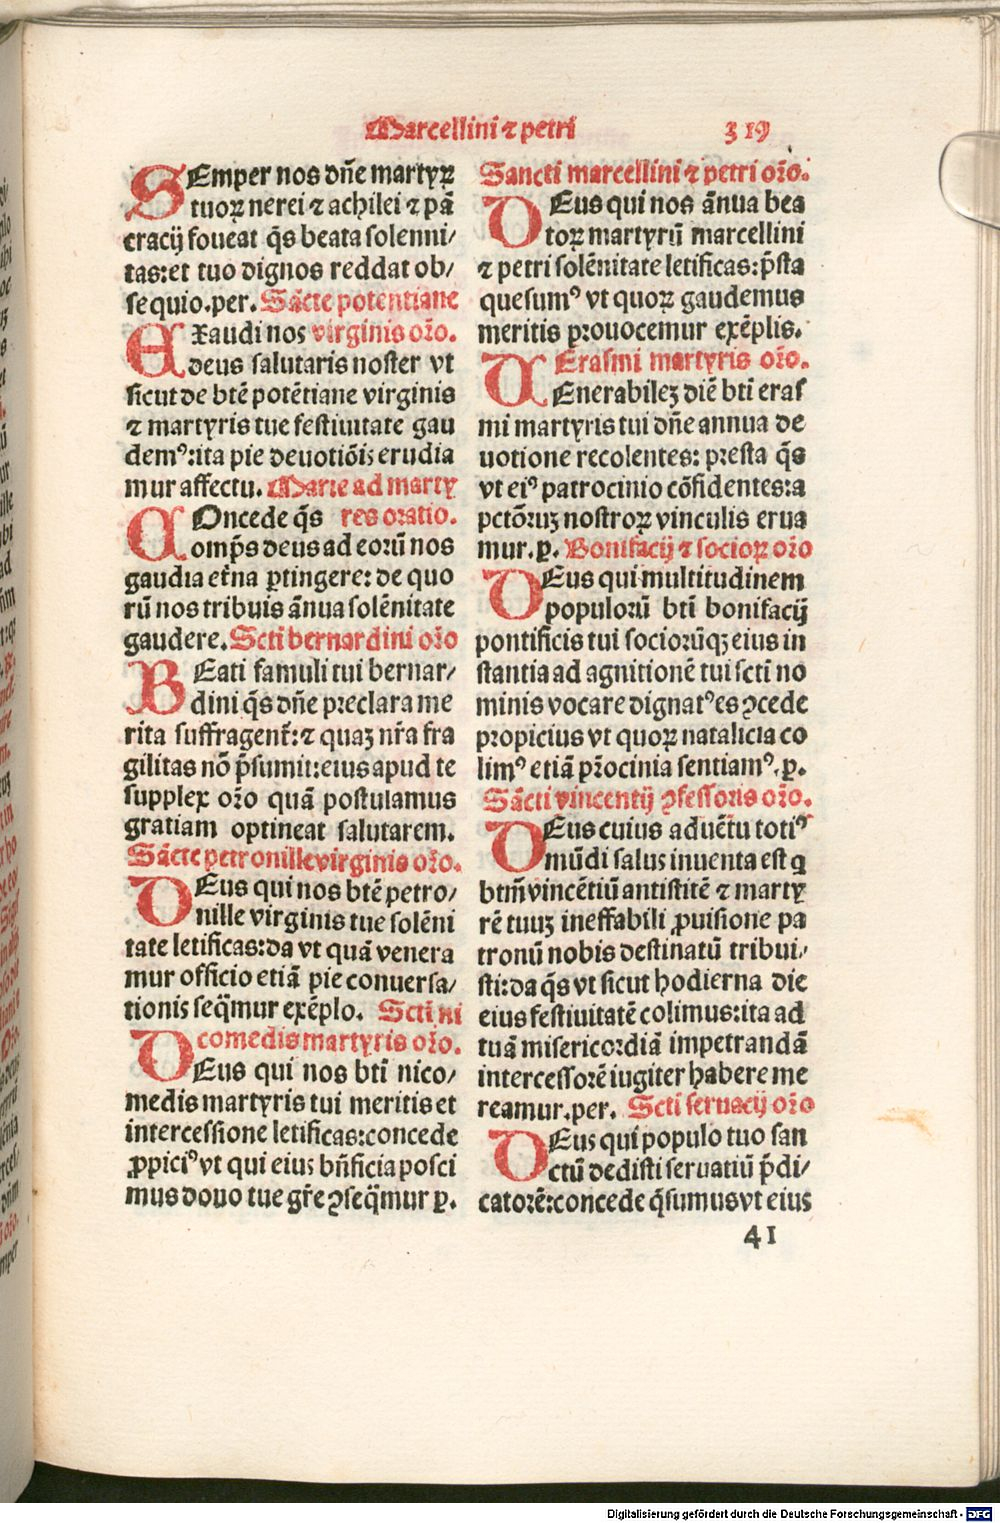 Marcellini ⁊ petri 319
SEmper nos dn̄e martyꝝ
tuoꝝ nerei ⁊ achilei ⁊ pā
cracij foueat q̄s beata solenni/
tas:et tuo dignos reddat ob/
sequio.per. Sācte potentiane
EXaudi nos virginis or̄o.
deus salutaris noster vt
sicut de btē potētiane virginis
⁊ martyris tue festiuitate gau
demꝰ:ita pie deuotiōis erudia
mur affectu. Marie ad marty
COncede q̄s res oratio.
omp̄s deus ad eorū nos
gaudia et̄na ꝑtingere: de quo
rū nos tribuis ānua solēnitate
gaudere. Scti bernardini or̄o
BEati famuli tui bernar/
dini q̄s dn̄e preclara me
rita suffragent̄:⁊ quaꝫ nr̄a fra
gilitas nō p̄sumit:eius apud te
supplex or̄o quā postulamus
gratiam optineat salutarem.
Sācte petronille virginis or̄o.
DEus qui nos btē petro/
nille virginis tue solēni
tate letificas:da vt quā venera
mur officio etiā pie conuersa/
tionis seq̄mur exēplo. Scti ni
comedis martyris or̄o.
DEus qui nos bti nico/
medis martyris tui meritis et
intercessione letificas:concede
ꝓpiciꝰ vt qui eius bn̄ficia posci
mus dono tue gr̄e ꝯseq̄mur ꝑ.
Sancti marcellini ⁊ petri or̄o.
DEus qui nos ānua bea
toꝝ martyrū marcellini
⁊ petri solēnitate letificas:p̄sta
quesumꝰ vt quoꝝ gaudemus
meritis prouocemur exēplis.
Erasmi martyris or̄o.
VEnerabileꝫ diē bti eras
mi martyris tui dn̄e annua de
uotione recolentes: presta q̄s
vt eiꝰ patrocinio cōfidentes:a
pctōruꝫ nostroꝝ vinculis erua
mur.ꝑ. Bonifacij ⁊ socioꝝ or̄o
DEus qui multitudinem
populorū bti bonifacij
pontificis tui sociorūqꝫ eius in
stantia ad agnitionē tui scti no
minis vocare dignatꝰ es ꝯcede
propicius vt quoꝝ natalicia co
limꝰ etiā pr̄ocinia sentiamꝰ.ꝑ.
Sācti vincentij ꝯfessoris or̄o.
DEus cuius aduētu totiꝰ
mūdi salus inuenta est q
btm̄ vincētiū antistitē ⁊ marty
rē tuuꝫ ineffabili ꝓuisione pa
tronū nobis destinatū tribui/
sti:da q̄s vt sicut hodierna die
eius festiuitatē colimus:ita ad
tuā misericordiā impetrandā
intercessorē iugiter habere me
reamur.per. Scti seruacij or̄o
DEus qui populo tuo san
ctū dedisti seruatiū p̄di/
catorē:concede q̄sumus vt eius
41
Digitalisierung gefördert durch die Deutsche Forschungsgemeinschaft - DFG